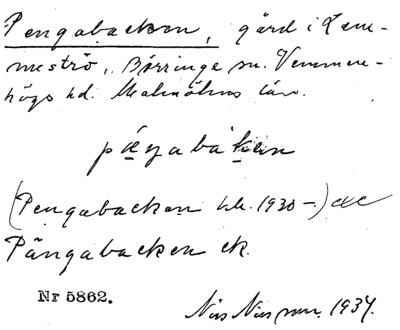 Pengabacken, gård i Lem-
meströ, Börringe sn. Vemmen-
högs hd. Malmöhus län.
(Pengabacken kk. 1930 –)
Pängabacken ek.
Nr 5862.
Nils Nilsson. 1934.